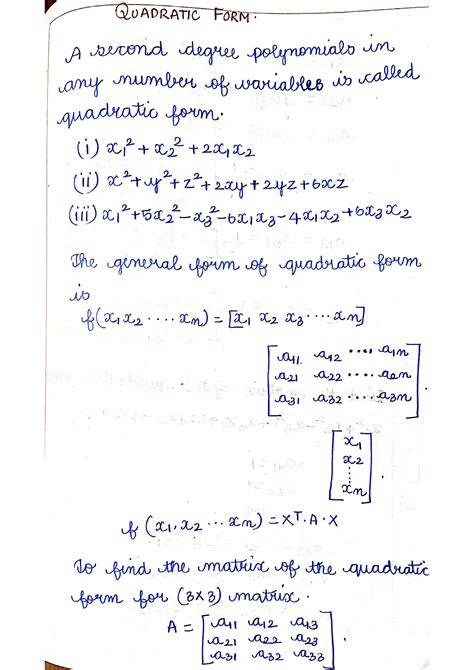 QUADRATIC FORM.
A second degree polynomials in
any number of variables is called
quadratic form.
(i) x₁² + x₂² + 2x₁x₂
(ii) x² + y² + z² + 2xy + 2yz + 6xz
(iii) x₁² + 5x₂² - x₃² - 6x₁x₃ - 4x₁x₂ + 6x₃x₂
The general form of quadratic form
is
f(x₁x₂ .... xn) = [x₁ x₂ x₃ .... xn]
[a₁₁ a₁₂ .... a₁n
a₂₁ a₂₂ .... a₂n
a₃₁ a₃₂ .... a₃n].
[x₁
x₂
⋮
xn].
f(x₁, x₂ ... xn) = Xᵀ.A.X
To find the matrix of the quadratic
form for (3x3) matrix.
A = [a₁₁ a₁₂ a₁₃
a₂₁ a₂₂ a₂₃
a₃₁ a₃₂ a₃₃].